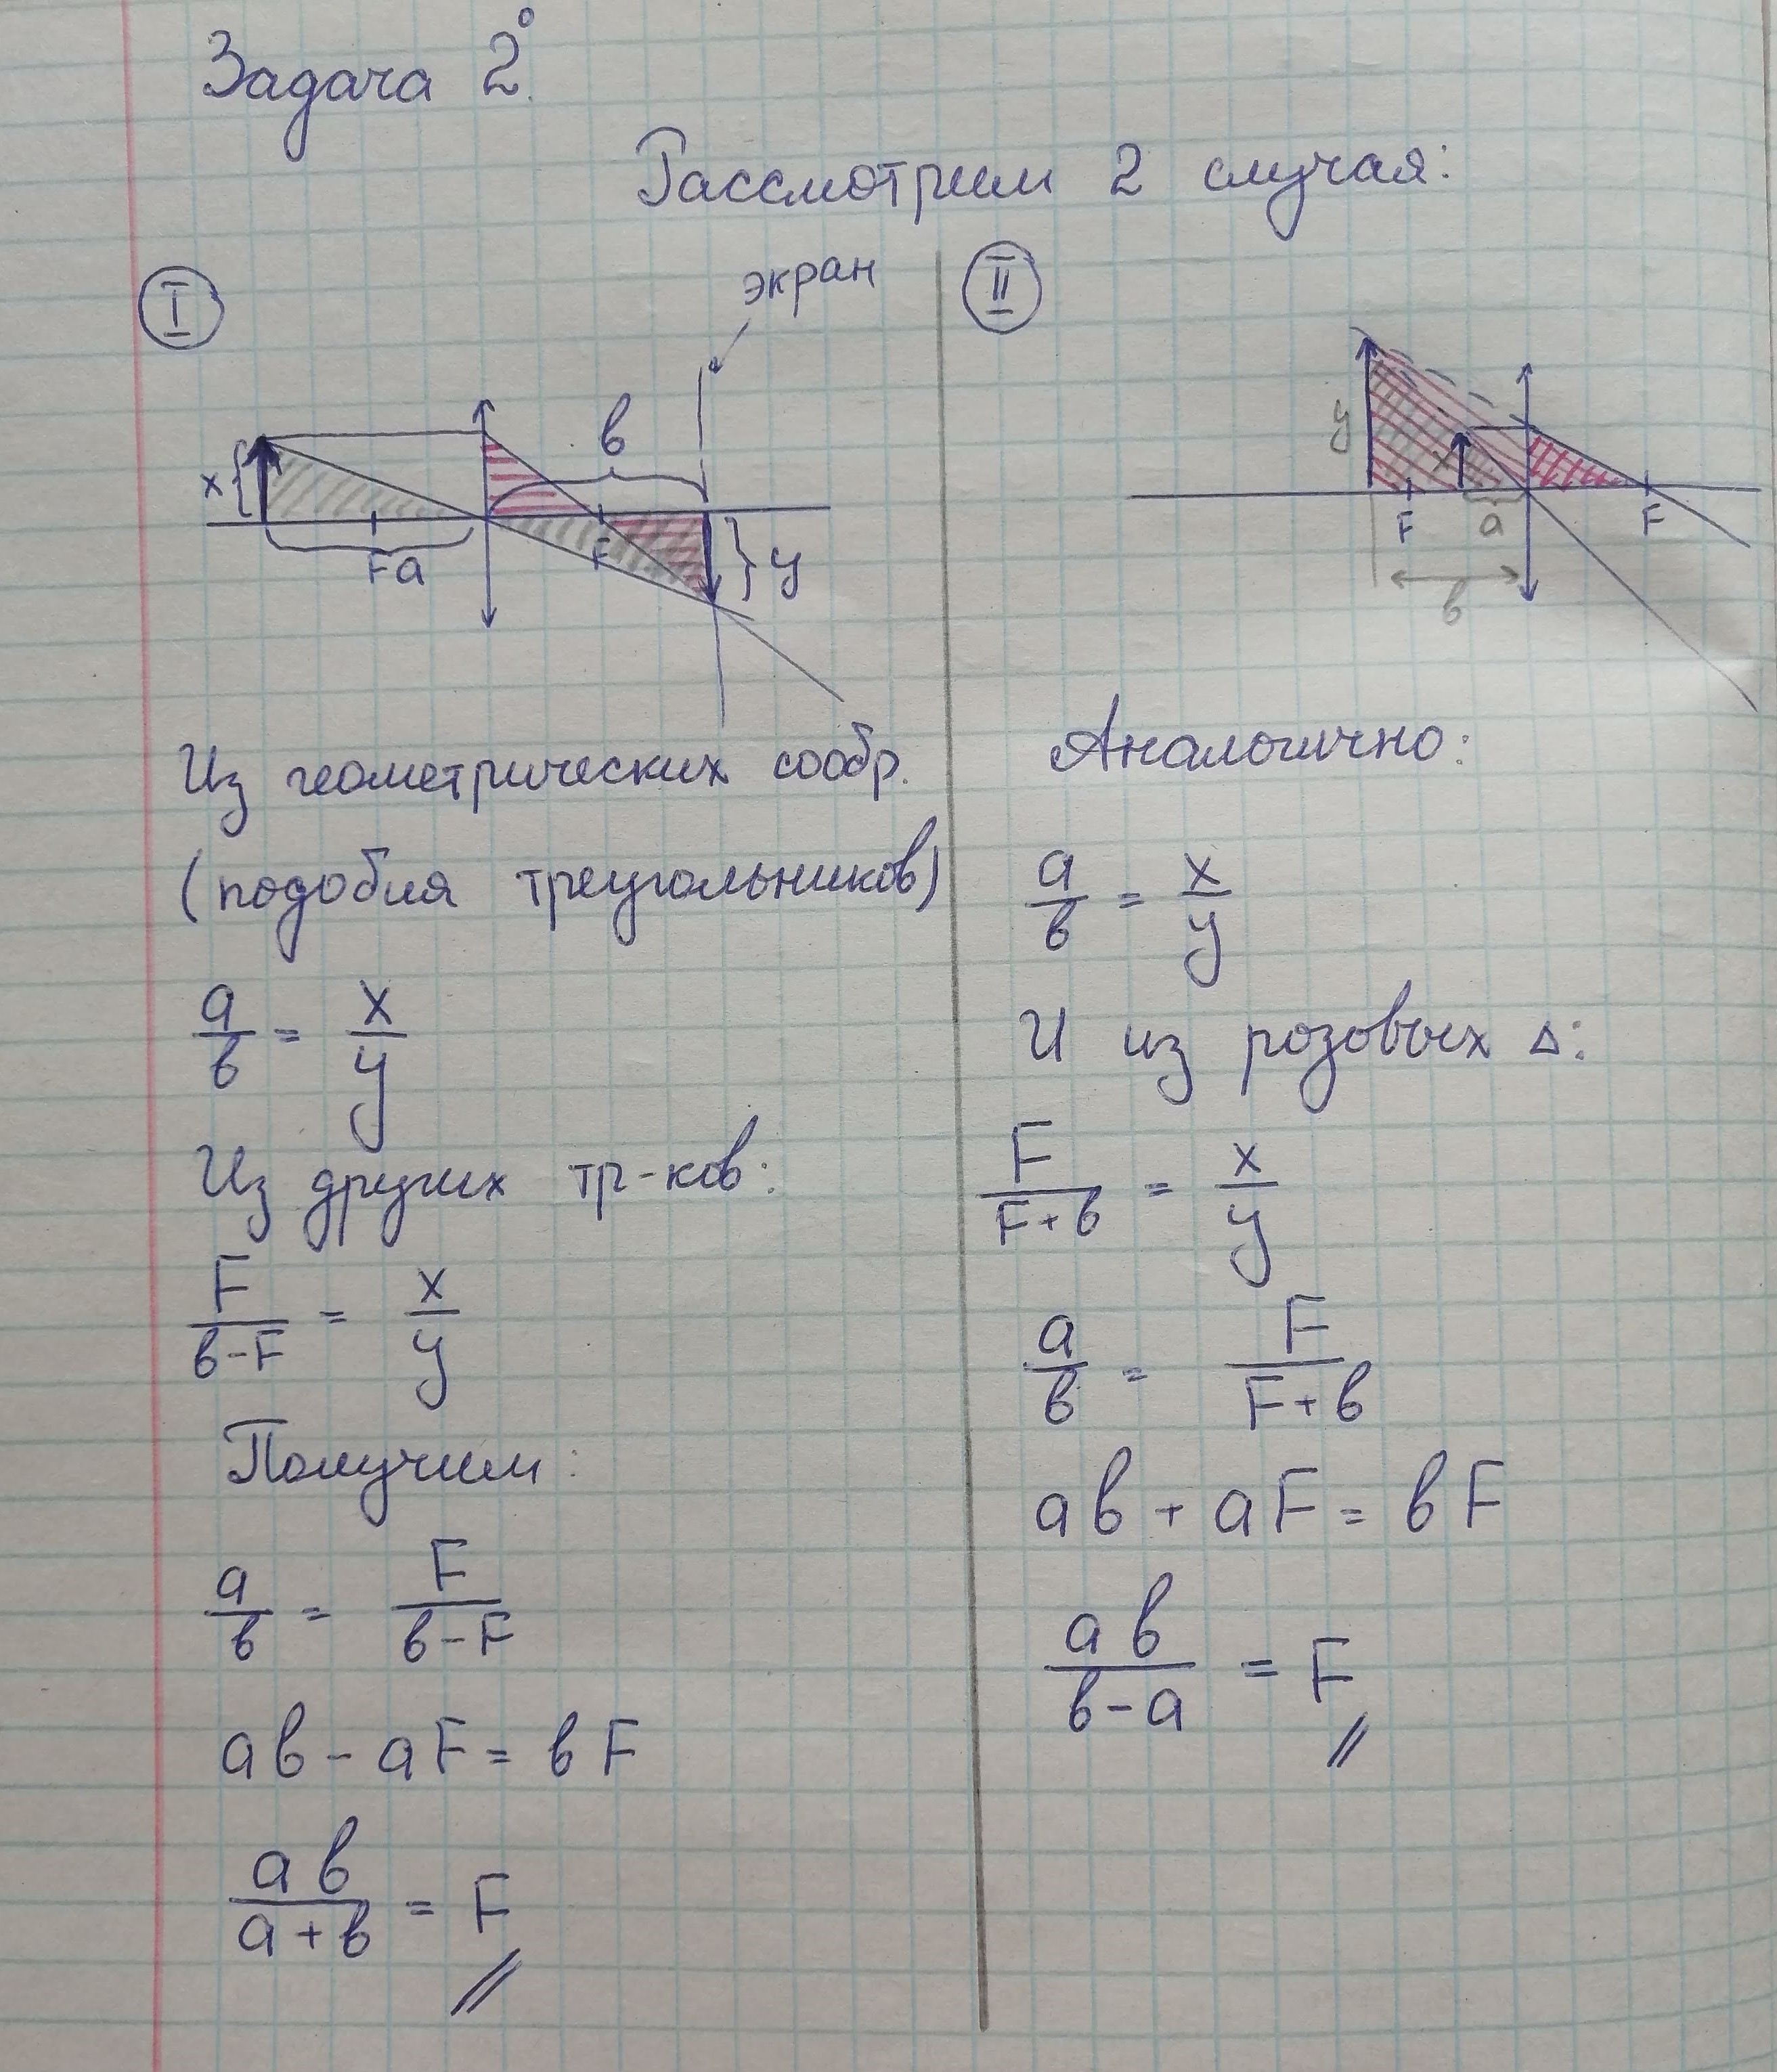 Задача 2°.
Рассмотрим 2 случая:
I
экран
x
в
F a
F
y
Из геометрических сообр.
(подобия треугольников)
a/в = x/y
Из других тр-ков:
F/(в-F) = x/y
Получим:
a/в = F/(в-F)
aв - aF = вF
aв/(a+в) = F
II
y
x
F
a
F
в
Аналогично:
a/в = x/y
И из розовых Δ:
F/(F+в) = x/y
a/в = F/(F+в)
aв + aF = вF
aв/(в-a) = F